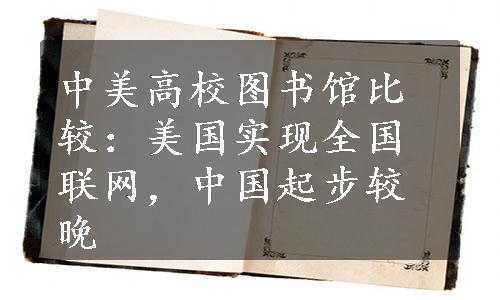 中美高校图书馆比
较：美国实现全国
联网，中国起步较
晚